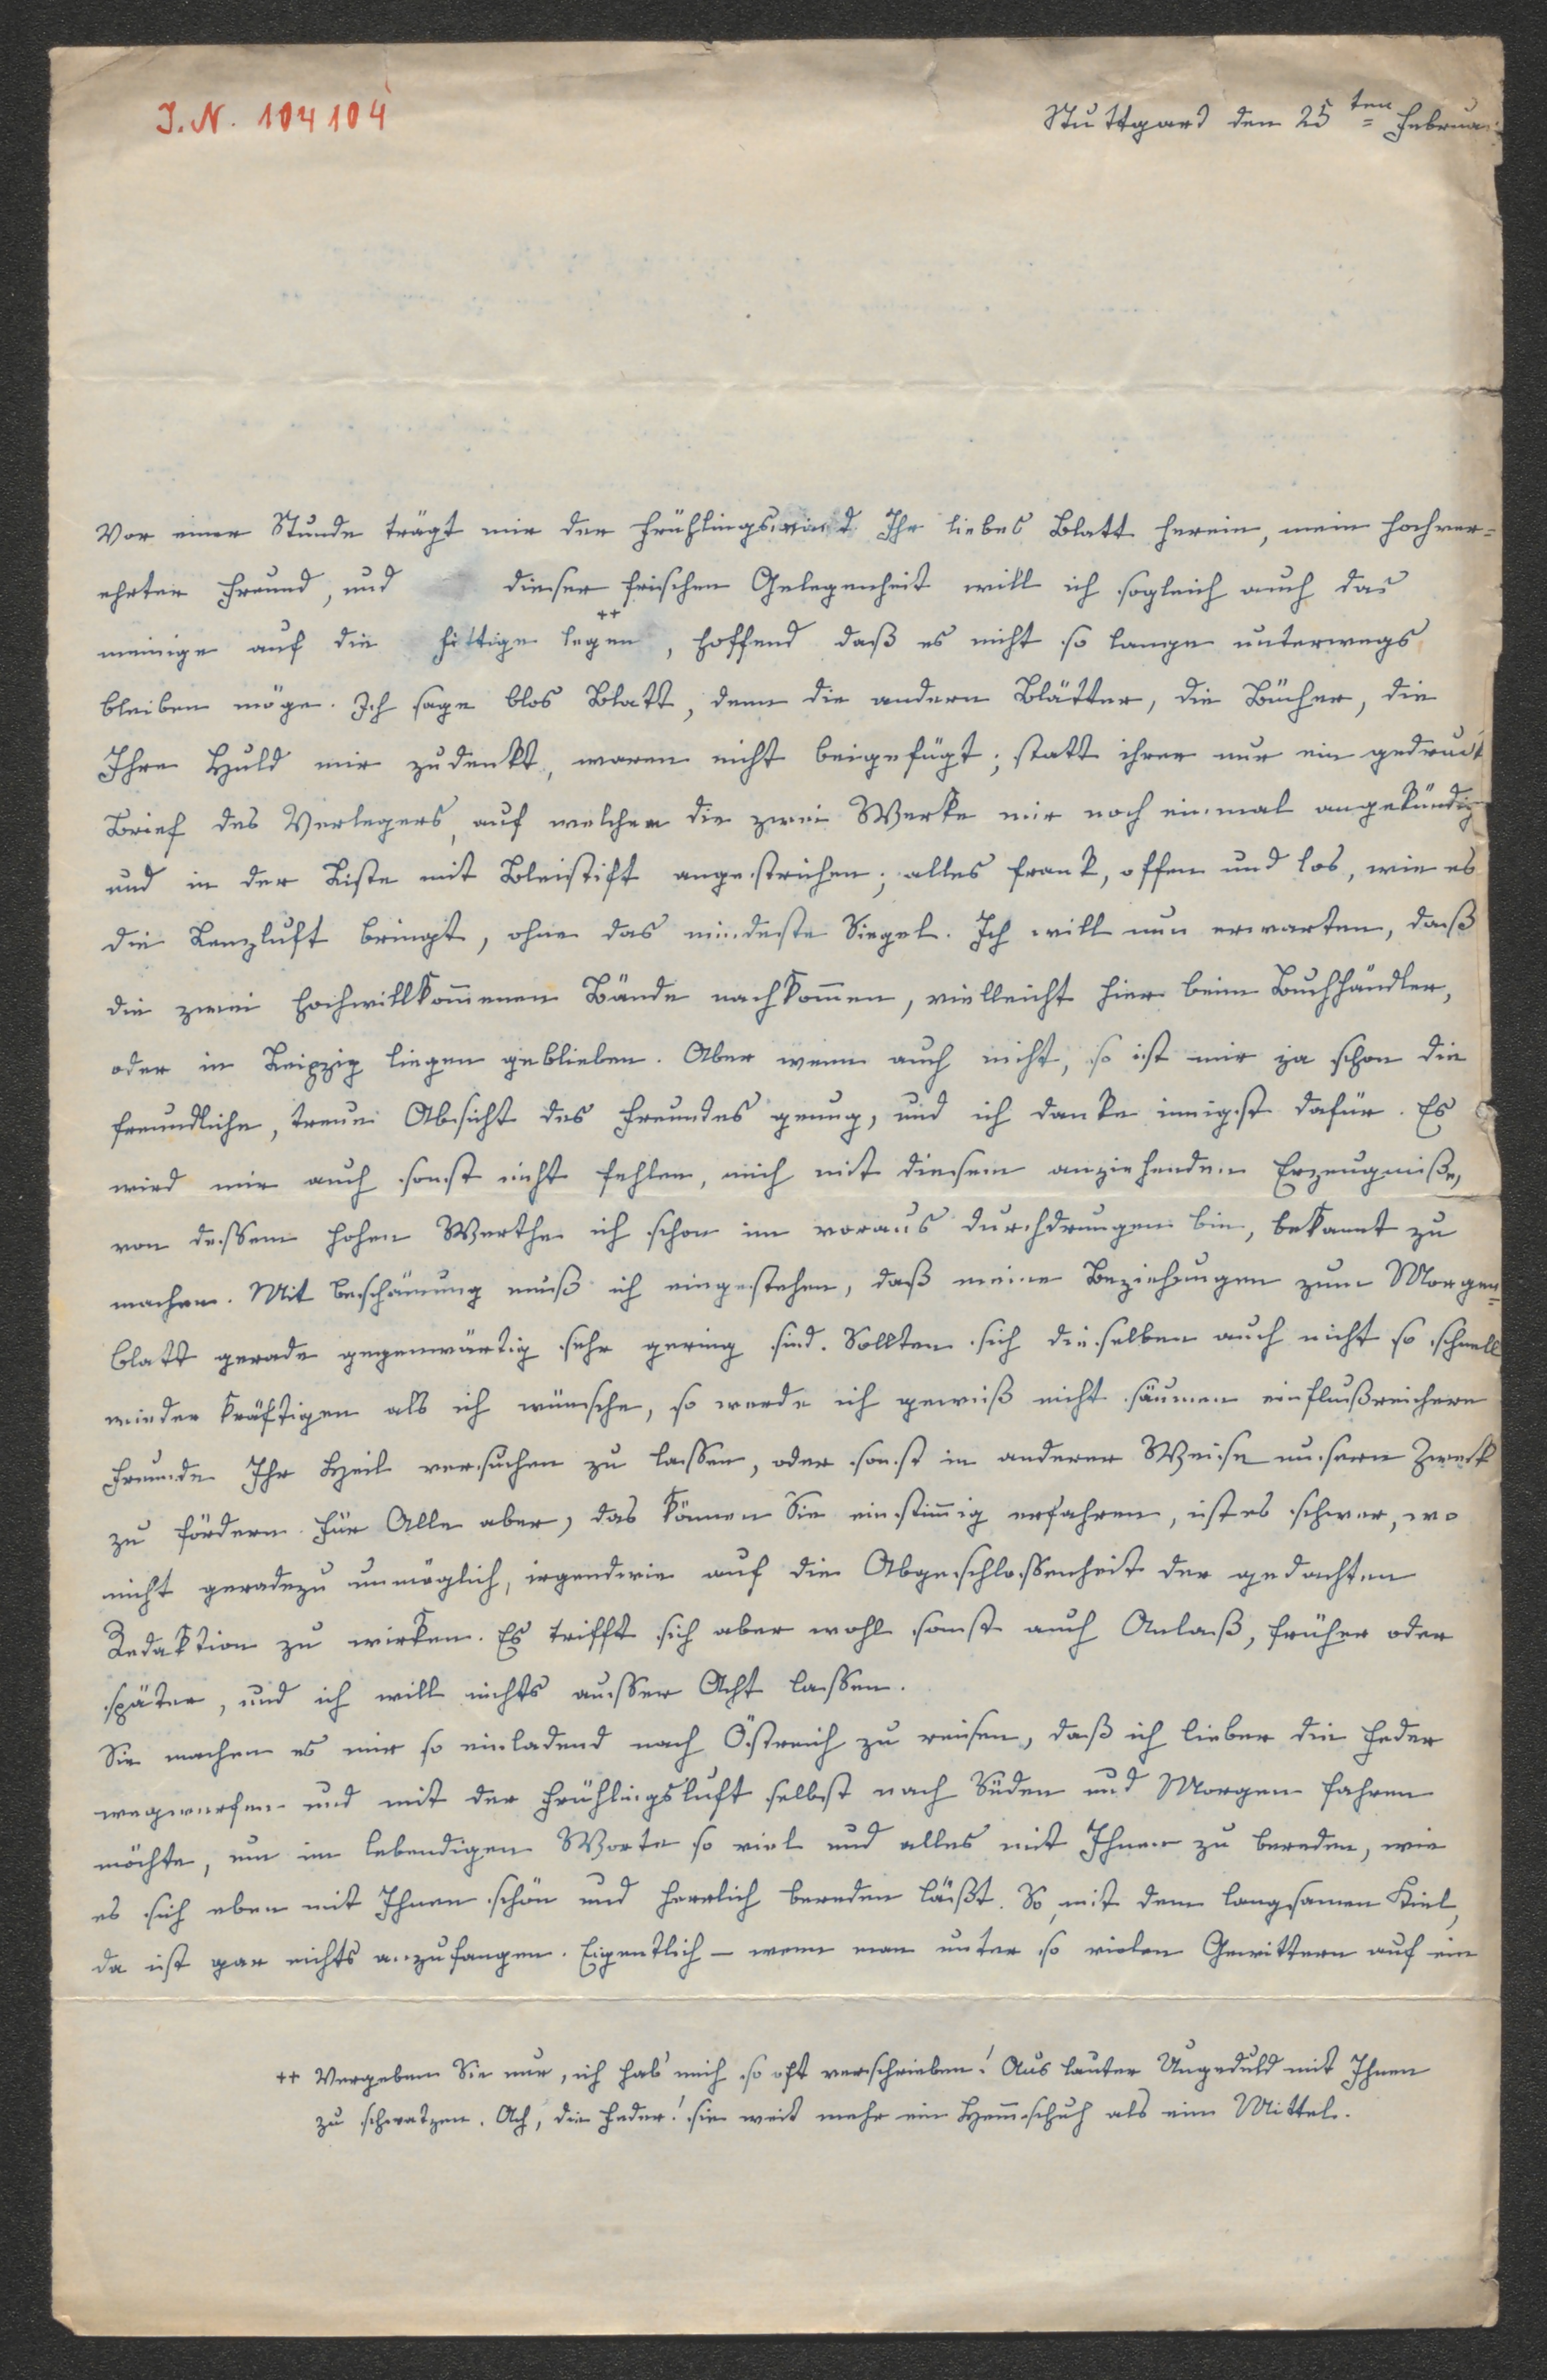 I. N. 104104
Stuttgard den 25ten Februar
Vor einer Stunde trägt mir der Frühlingswind Ihr liebes Blatt herein, mein hochver=
ehrter Freund, und dieser frischen Gelegenheit will ich sogleich auch das
meinige auf die Fittige legen ++, hoffend daß es nicht so lange unterwegs
bleiben möge. Ich sage blos Blatt, denn die andern Blätter, die Bücher, die
Ihre Huld mir zudenkt, waren nicht beigefügt; statt ihrer nur ein gedruckt
Brief des Verlegers, auf welchem die zwei Werke mir noch einmal angekündig
und in der Liste mit Bleistift angestrichen; alles frank, offen und los, wie es
die Lenzluft bringt, ohne das mindeste Siegel. Ich will nun erwarten, daß
die zwei hochwillkom̄enen Bände nachkom̄en, vielleicht hier beim Buchhändler,
oder in Leipzig liegen geblieben. Aber wenn auch nicht, so ist mir ja schon die
freundliche, treue Absicht des Freundes genug, und ich danke innigst dafür. Es
wird mir auch sonst nicht fehlen, mich mit diesem anziehenden Erzeugniße,
von dessem hohen Werthe ich schon im voraus durchdrungen bin, bekannt zu
machen. Mit Beschämung muß ich eingestehen, daß meine Beziehungen zum Morgen=
blatt gerade gegenwärtig sehr gering sind. Sollten sich dieselben auch nicht so schnell
wieder kräftigen als ich wünsche, so werde ich gewiß nicht säumen einflußreichere
Freunde Ihr Heil versuchen zu lassen, oder sonst in anderer Weise unsern Zweck
zu fördern. Für Alle aber, das können Sie einstim̄ig erfahren, ist es schwer, wo
nicht geradezu unmöglich, irgendwie auf die Abgeschlossenheit der gedachten
Redaktion zu wirken. Es trifft sich aber wohl sonst auch Anlaß, früher oder
später, und ich will nichts ausser Acht lassen.
Sie machen es mir so einladend nach Östreich zu reisen, daß ich lieber die Feder
wegwerfen und mit der Frühlingsluft selbst nach Süden und Morgen fahren
möchte, um im lebendigen Worte so viel und alles mit Ihnen zu bereden, wie
es sich eben mit Ihnen schön und herrlich bereden läßt. So, mit dem langsamen Kiel,
da ist gar nichts anzufangen. Eigentlich – wenn man unter so vielen Gewittern auf ein
++ Vergeben Sie nur, ich hab' mich so oft verschrieben! Aus lauter Ungeduld mit Ihnen
zu schwatzen. Ach, die Feder! sie weit mehr ein Hem̄schuh als ein Mittel.